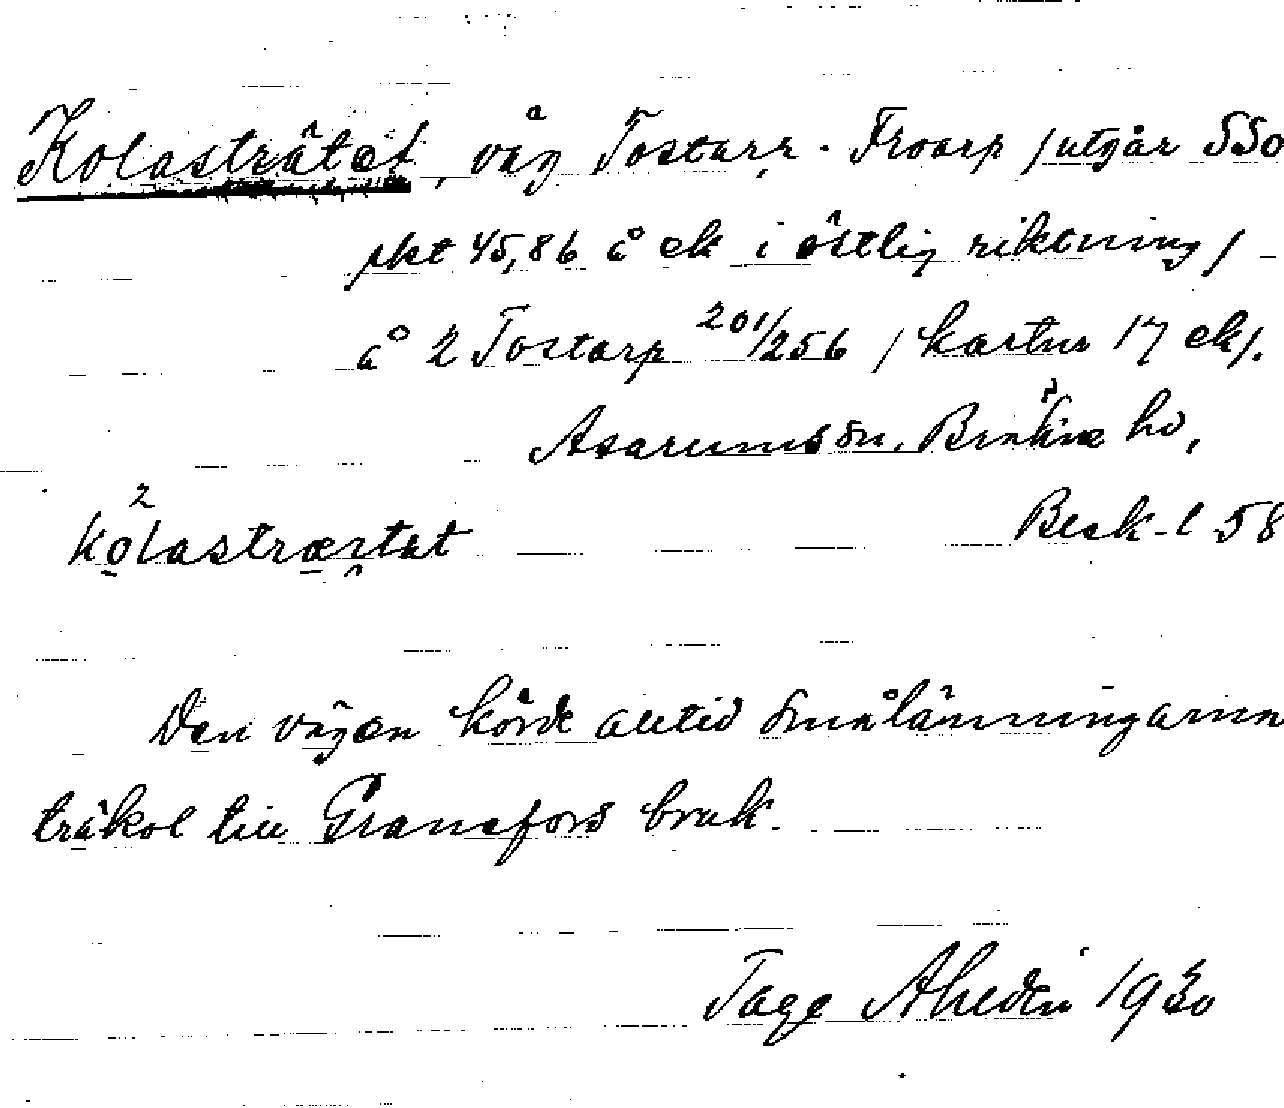 Kolasträtet, väg Tostarp - Froarp /utgår SSO
pkt 45,86 å ek i östlig riktning/
å 2 Tostarp 201/256 / kartur 17 ek/.
Asarums sn. Bräkne hd,
2
kolastrætət
Besk-l 58
Den vägen körde alltid smålänningarna
träkol till Granefors bruk.
Tage Ahldén 1930